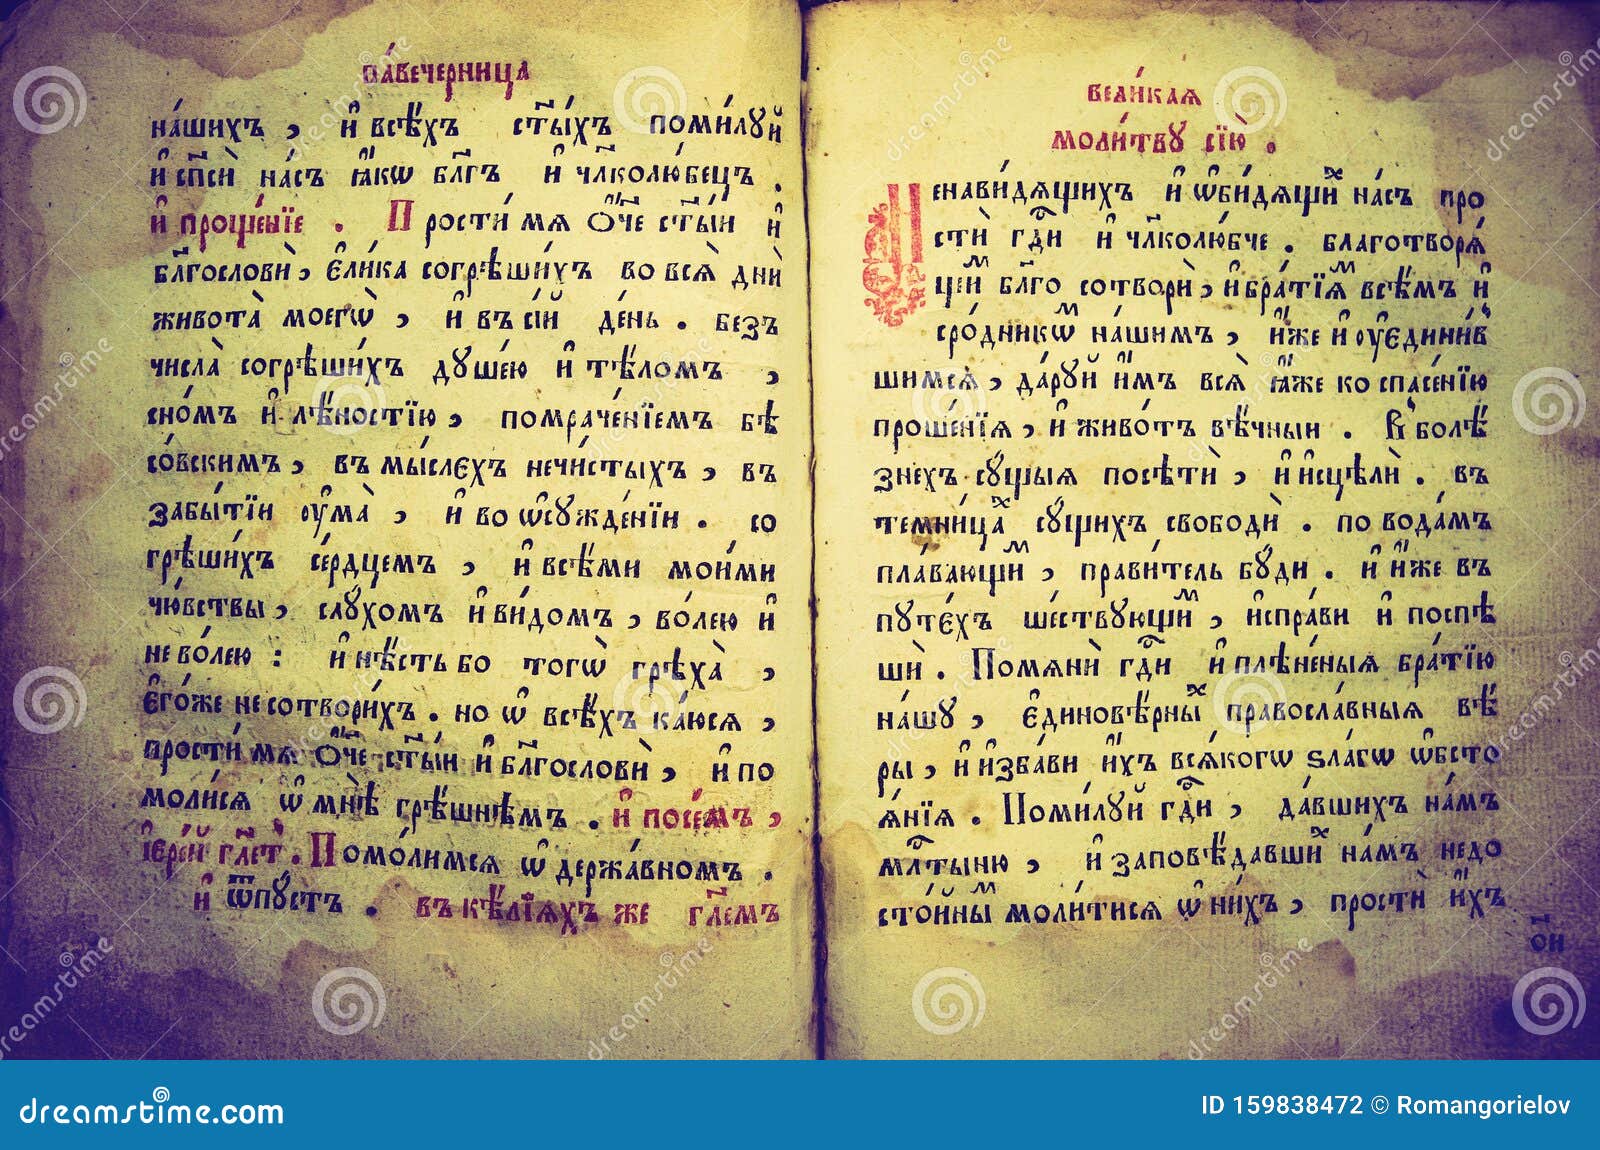 па́вечерница
на́шихъ, и҆ всѣ́хъ ст҃ы́хъ поми́лꙋй
и҆ сп҃сѝ на́съ ꙗ҆́кѡ бл҃гъ и҆ чл҃колю́бецъ.
и҆ проще́нїе. Прости́ мѧ ѻ҆́ч҃е ст҃ы́и и҆
бл҃гословѝ, є҆ли́ка согрѣши́хъ во всѧ̀ днѝ
живота̀ моегѡ̀, и҆ въ сі́й де́нь. безъ
числа̀ согрѣши́хъ дꙋше́ю и҆ тѣ́ломъ,
сно́мъ и҆ лѣ́ностїю, помраче́нїемъ бѣ
со́вскимъ, въ мы́слехъ нечи́стыхъ, въ
забы́тїи ᲂу҆ма̀, и҆ во ѡ҆сꙋжде́нїи. со
грѣши́хъ се́рдцемъ, и҆ всѣ́ми мои́ми
чю́вствы, слꙋ́хомъ и҆ ви́домъ, во́лею и҆
нево́лею: и҆ нѣ́сть бо тогѡ̀ грѣха̀,
є҆го́же не сотвори́хъ. но ѡ҆ всѣ́хъ ка́юсѧ,
прости́ мѧ ѻ҆́ч҃е ст҃ы́и и҆ бл҃гословѝ, и҆ по
моли́сѧ ѡ҆ мнѣ̀ грѣ́шнѣмъ. и҆ посе́мъ,
і҆ере́й гл҃етъ. Помо́лимсѧ ѡ҆ держа́вномъ.
и҆ ѿпꙋ́стъ. въ кѣ́лїѧхъ же гл҃емъ
вели́каѧ
моли́твꙋ сїю̀.
Ненави́дѧщихъ и҆ ѡ҆би́дѧщиⷯ на́съ про
стѝ гдⷭ҇и и҆ чл҃колю́бче. благотворѧ́
щиⷨ бл҃го сотворѝ, и҆ бра́тїѧⷨ всѣ́мъ и҆
сро́дникѡⷨ на́шимъ, и҆́же и҆ ᲂу҆едини́в
шимсѧ, да́рꙋй и҆̀мъ всѧ̀ ꙗ҆́же ко спасе́нїю
проше́нїѧ, и҆ живо́тъ вѣ́чныи. В болѣ́
знехъ сꙋ́щыѧ посѣтѝ, и҆ и҆сцѣлѝ. въ
темни́цаⷯ сꙋ́щихъ свободѝ. по вода́мъ
пла́вающиⷨ, прави́тель бꙋ́ди. и҆ и҆́же въ
пꙋте́хъ ше́ствꙋющиⷨ, и҆спра́ви и҆ поспѣ
шѝ. Помѧнѝ гдⷭ҇и и҆ плѣне́ныѧ бра́тїю
на́шꙋ, є҆динові́рныⷯ правосла́вныѧ вѣ́
ры, и҆ и҆зба́ви и҆̀хъ всѧ́когѡ ѕла́гѡ ѡ҆бсто
ѧ́нїѧ. Поми́лꙋй гдⷭ҇и, да́вшихъ на́мъ
мл҃тыню, и҆ заповѣ́давшиⷯ на́мъ недо
сто́йныⷨ моли́тисѧ ѡ҆ ни́хъ, простѝ и҆̀хъ
он
dreamstime.com
ID 159838472 © Romangorielov